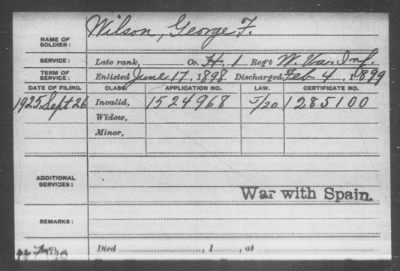 NAME OF SOLDIER: Wilson, George F.
SERVICE: Late rank, Co. H, 1 Reg't W. Va. Inf.
TERM OF SERVICE: Enlisted June 17, 1898 Discharged Feb 4, 1899
DATE OF FILING. CLASS. APPLICATION NO. LAW. CERTIFICATE NO.
1925 Sept 26 Invalid, 1524968 5/20 1285100
Widow,
Minor,
ADDITIONAL SERVICES:
War with Spain.
REMARKS:
Died , 1 , at